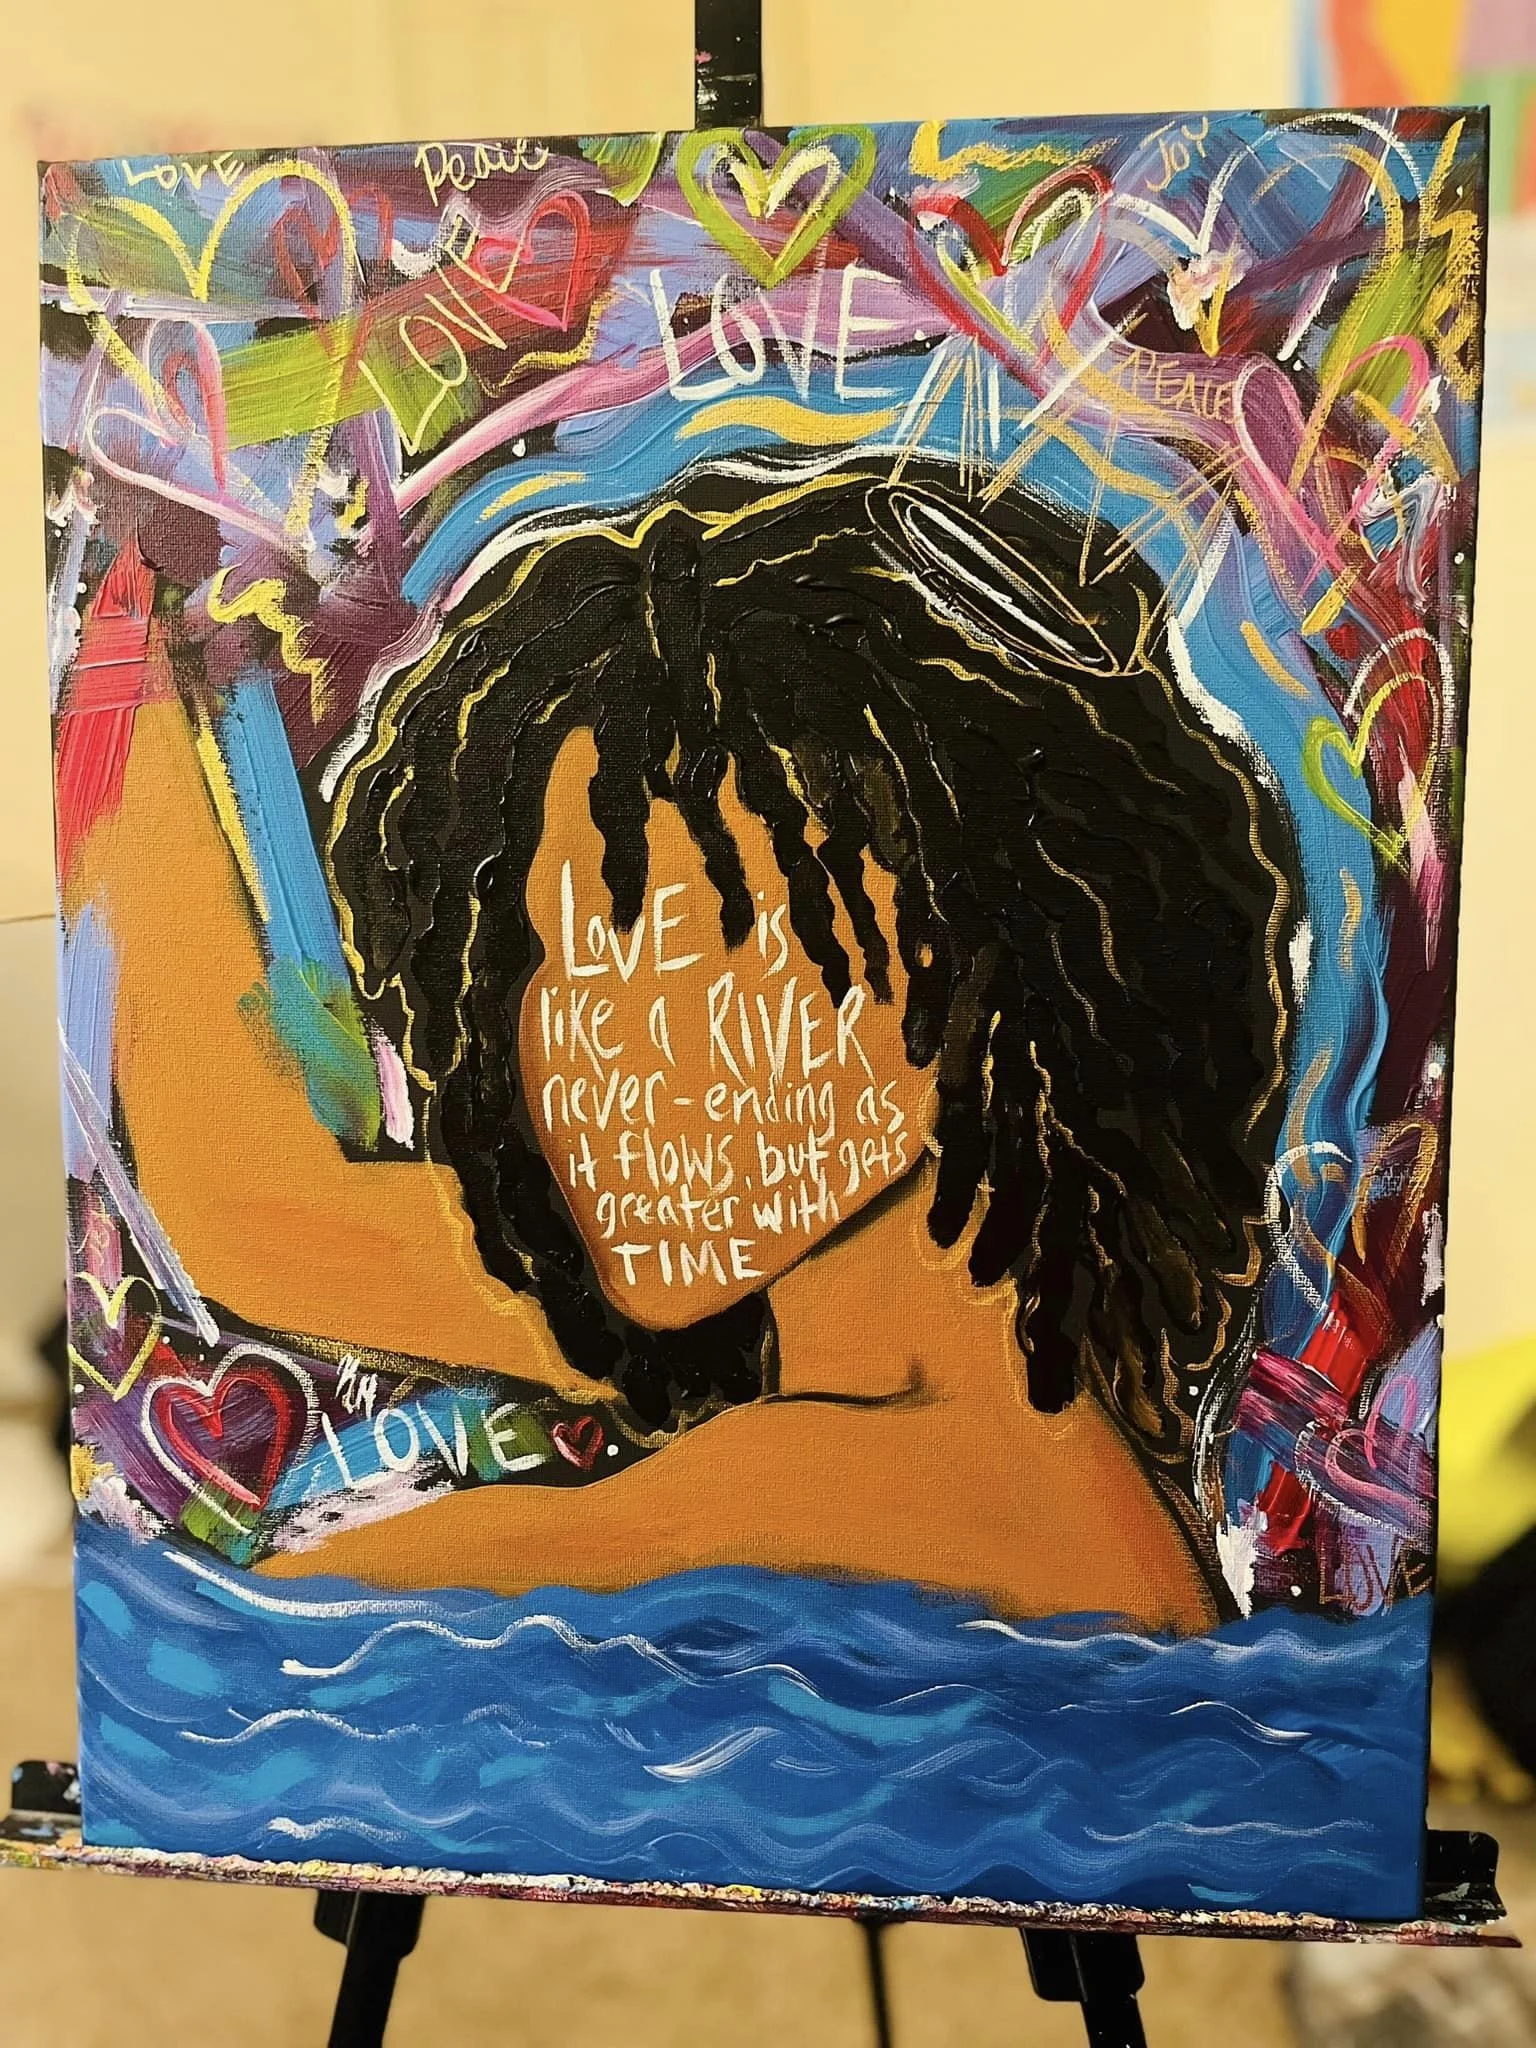 LOVE
Peace
Joy
LOVE
LOVE
PEACE
LOVE is
like a RIVER
never-ending as
it flows, but gets
greater with
TIME
LOVE
LOVE